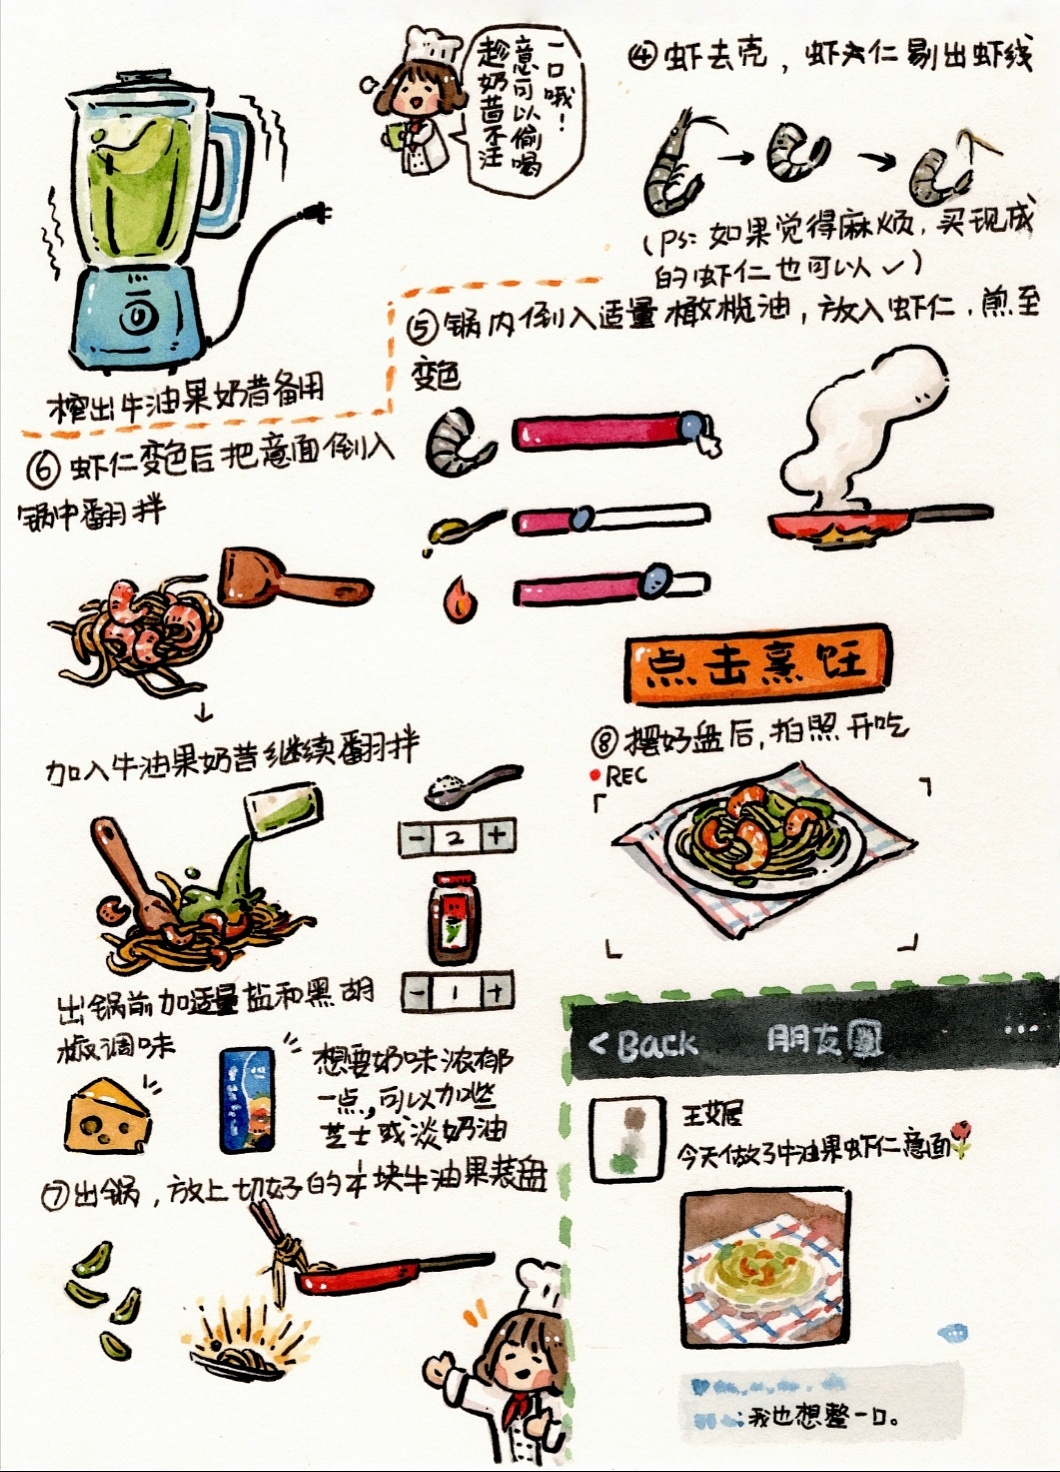 一口哦！
意可以偷喝
趁奶昔不注
④虾去壳，虾大仁剔出虾线
（PS：如果觉得麻烦，买现成
的虾仁也可以✓）
榨出牛油果奶昔备用
⑤锅内倒入适量橄榄油，放入虾仁，煎至
变色
⑥虾仁变色后把意面倒入
锅中翻拌
点击烹饪
加入牛油果奶昔继续翻拌
- 2 +
- 1 +
出锅前加适量盐和黑胡
椒调味
想要奶味浓郁
一点，可以加些
芝士或淡奶油
⑦出锅，放上切好的半块牛油果装盘
⑧摆好盘后，拍照开吃
REC
< Back 朋友圈 ...
王艾居
今天做了牛油果虾仁意面
：我也想整一口。